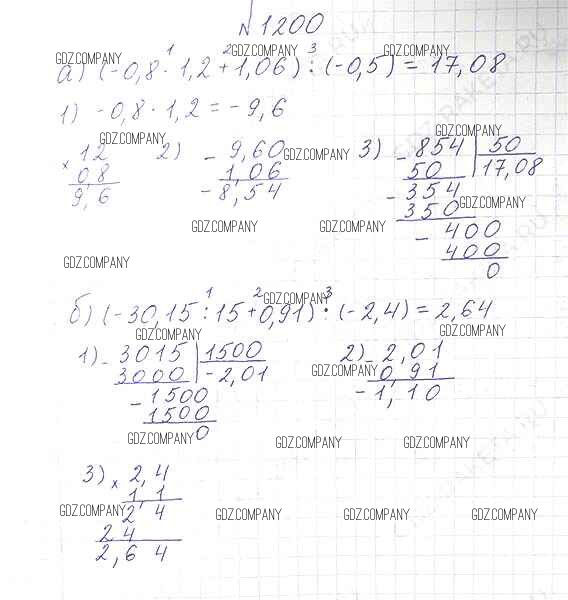 №1200
GDZ.COMPANY GDZ.COMPANY GDZ.COMPANY
а) (-0,8 · 1,2 + 1,06) : (-0,5) = 17,08
1 2 3
1) -0,8 · 1,2 = -9,6
GDZ.COMPANY GDZ.COMPANY
× 12
0,8
9,6
2) - 9,60
1,06
-8,54
GDZ.COMPANY
3) - 854 | 50
50 17,08
- 354
350
- 400
400
0
GDZ.COMPANY
GDZ.COMPANY GDZ.COMPANY
GDZ.COMPANY
б) (-30,15 : 15 + 0,91) · (-2,4) = 2,64
1 2 3
GDZ.COMPANY
GDZ.COMPANY GDZ.COMPANY
1) - 3015 | 1500
3000 -2,01
- 1500
1500
0
2) - 2,01
0,91
-1,10
GDZ.COMPANY
GDZ.COMPANY GDZ.COMPANY GDZ.COMPANY
3) × 2,4
1,1
2 4
24
2,64
GDZ.COMPANY GDZ.COMPANY GDZ.COMPANY GDZ.COMPANY